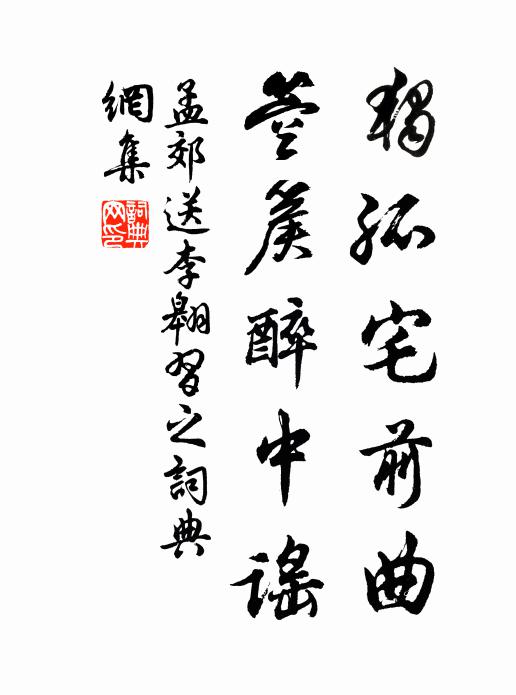 獨孤宅前曲
箜篌醉中謠
孟郊送李翱習之詞典
網集
詞典網印